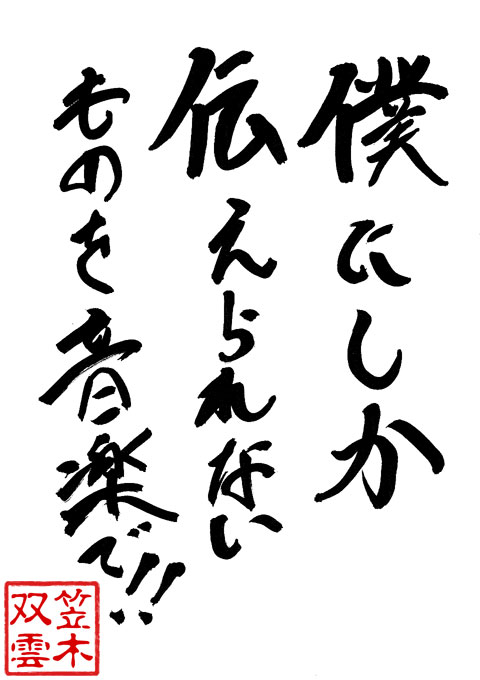 僕にしか
伝えられない
ものを音楽で!!
笠木
双雲